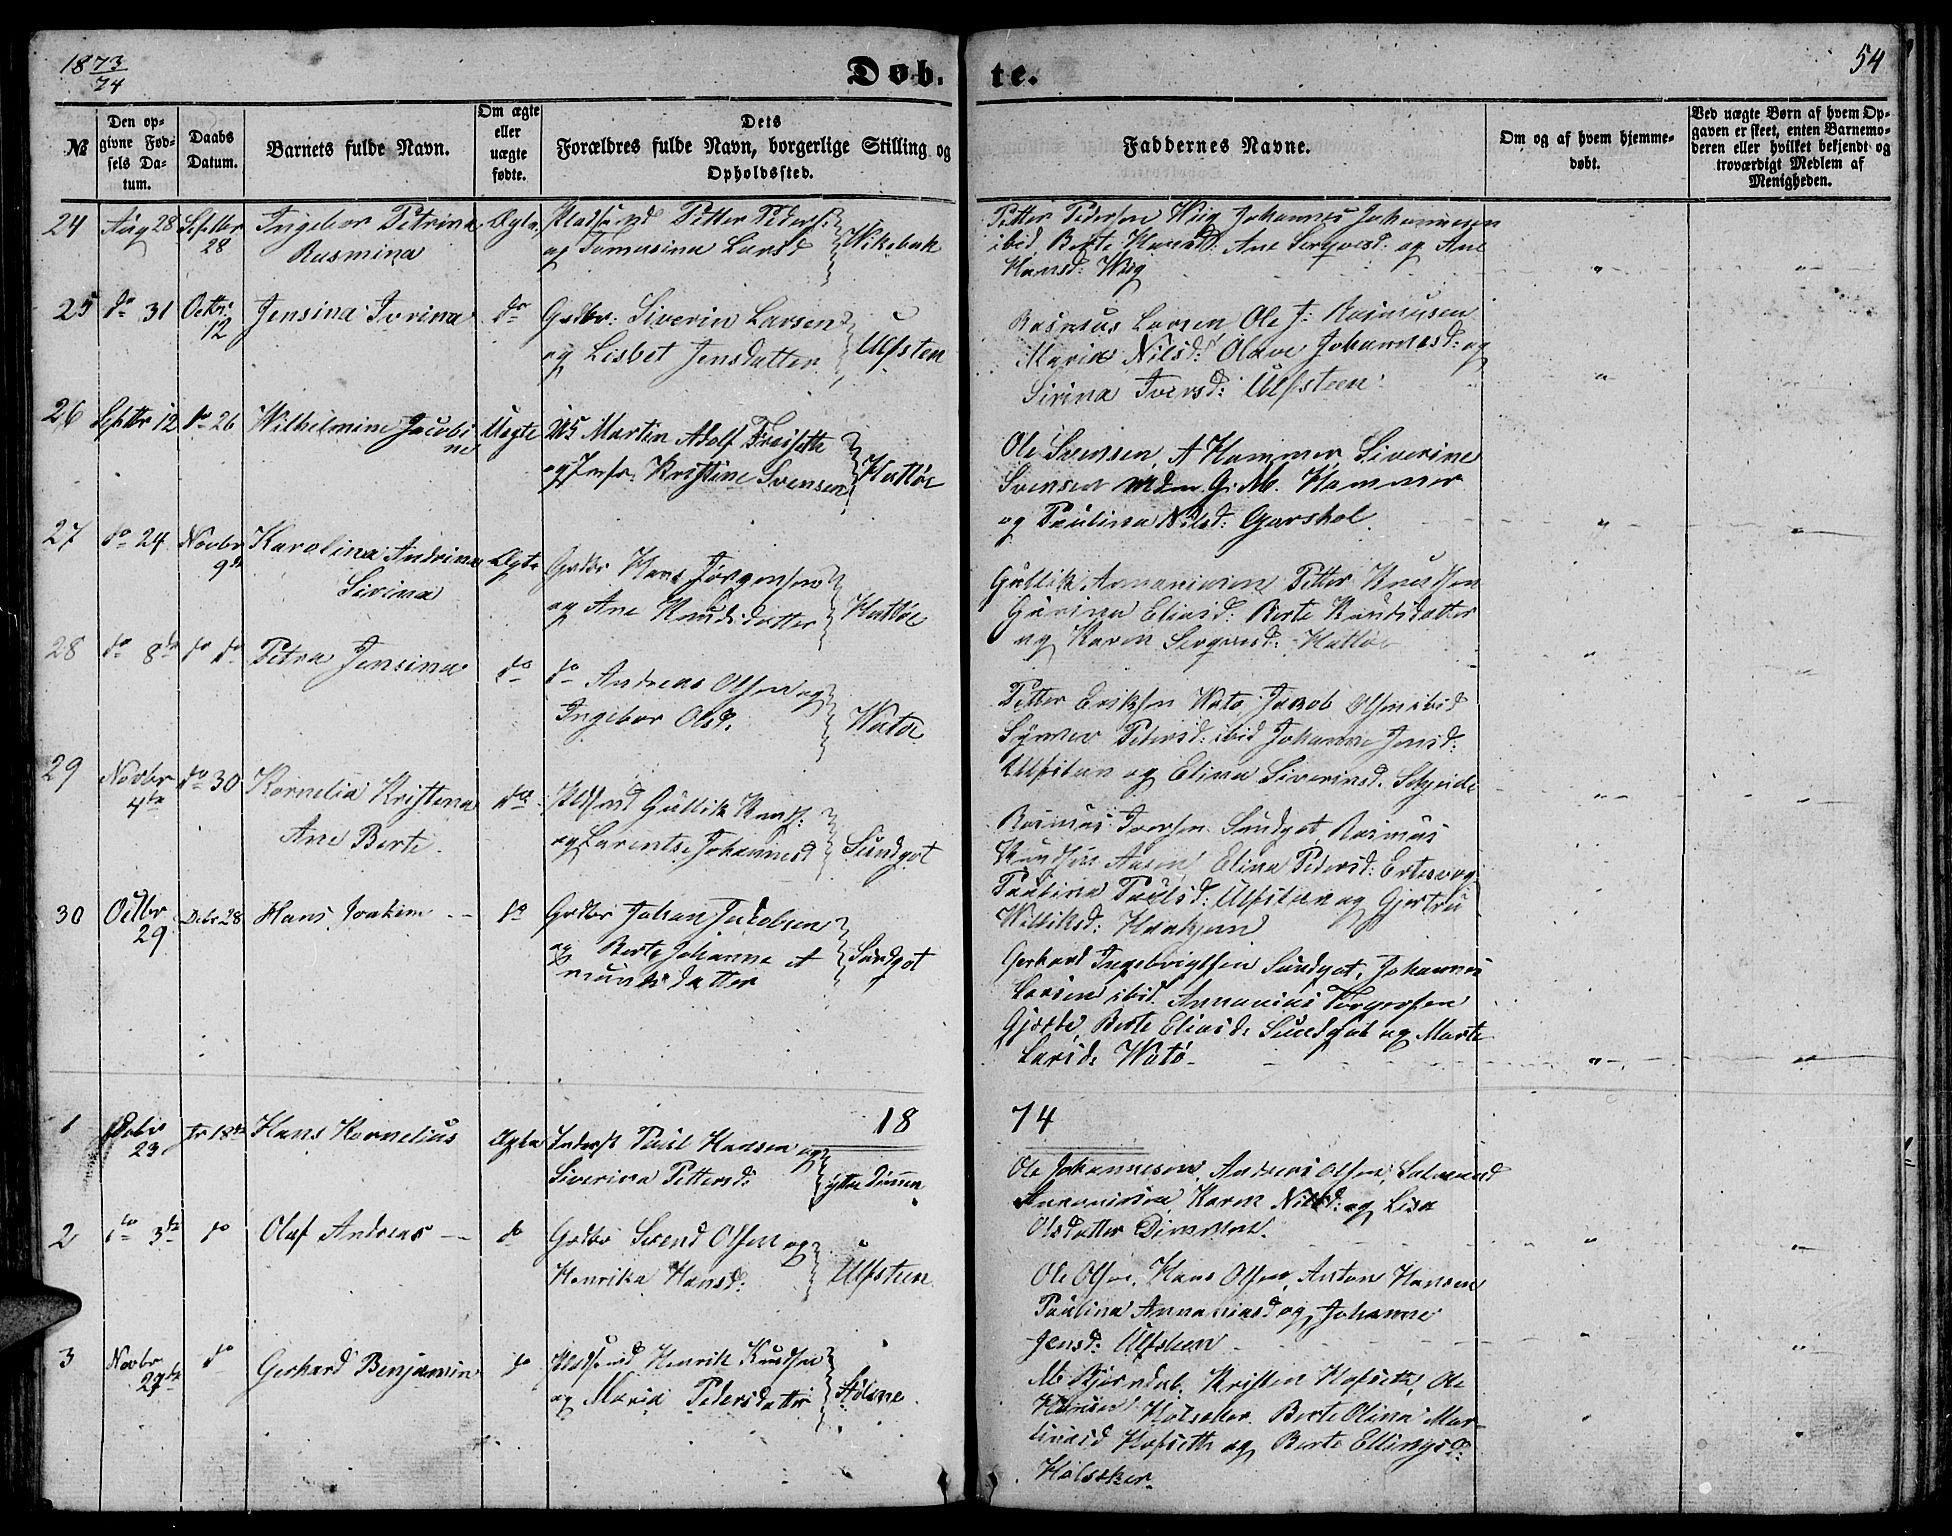 18 73/74
Døb. te.
54
№
Den opgivne Fødsels Datum.
Daabs Datum.
Barnets fulde Navn.
Om ægte eller uægte fødte.
Dets Forældres fulde Navn, borgerlige Stilling og Opholdssted.
Faddernes Navne.
Om og af hvem hjemmedøbt.
Ved uægte Børn af hvem Opgaven er skeet, enten Barnemoderen eller hvilket bekjendt og troværdigt Medlem af Menigheden.
24 Aug 28 Septbr 28 Ingebor Petrina Rasmina Ægte
Pladsmd Petter Peders:
og Tomasina Larsd Wikebuk
Petter Pedersen Wiig Johannes Johannesen
ibid Berte Knudsd: Ane Sergvesd: og Ane
Hansd: Wiig
25 do 31 Octbr: 12 Jensina Ivrina do
Grdbr: Siverin Larsen
og Lisbet Jensdatter Ulfsten
Rasmus Larsen Ole J: Rasmusen
Marie Nilsd: Olave Johannesd: og
Sirina Iversd: Ulfsteen
26 Septbr 12 do 26 Wilhelmine Jacobine Uægte
Martin Adolf
og Kristine Svensen Hatløe
Ole Svensen, A Hammer, Siverine
Svensen Mdm G. M. Hammer
og Paulina Nilsd: Garshol
27 do 24 Novbr 9de Karolina Andrina Sivina Ægte
Grdbr Hans Jørgensen
og Ane Knudsdatter Hatløe
Gullik Annaniasen Petter Knudsen
Eliasd: Berte Knudsdatter
og Karen Sergvesd: Hatløe
28 do 8de do do Petra Jensina do
do Andreas Olsen og
Ingebor Olsd. Watøe
Petter Eriksen Watø, Jacob Olsen ibid
Pedersd: ibid Johanne Jensd:
Ulfsten og Elina Siverinsd.
29 Novbr 4de do 30 Kornelia Kristina Ane Berte do
Pladsmd Gullik Knuds:
og Larentse Johannesd Sundgot
Rasmus Iversen Sundgot Rasmus
Knudsen Aasen, Elina Pedersd: Ertesvog
Paulina Paulsd: Ulfsten og Gjertru
30 Octbr 29 Debr 28 Hans Joakim do
Grdbr Johan Jakobsen
og Berte Johanne A
mundsdatter Sundgot
Gerhard Ingebrigtsen Sundgot, Johannes
Larsen ibid. Annanias Torgersen
Berte Eliasd: Sundgot og Marte
Larsd: Watø
18 74
1 Debr 23 Hans Kornelius Ægte
Inderst Paul Hansen og
Siverina Pettersd: ytre Dimen
Ole Johannesen, Andreas Olsen,
Annaniasen, Karen Nilsd: og Lisa
Olsdatter Dimmen.
2 do 3de do Olaf Andreas do
Grdbr Svend Olsen og
Henrika Hansd. Ulfsteen
Ole Olsen, Hans Olsen, Anton Hansen
Paulina Annaniasd og Johanne
Jensd: Ulfsten
3 Novbr 27de do Gerhard Benjamin do
Pladsmd Henrik Knudsen
og Maria Pedersdatter
M. Bjørndal, Kristen Hofseth, Ole
Hansen Holseker, Berte Olina Mar
tinusd Hofseth og Berte Ellingsd:
Holseker.